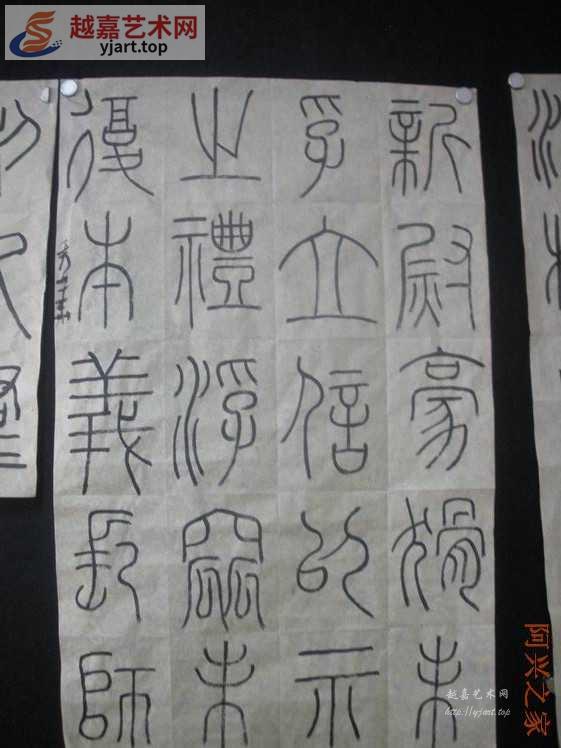 越嘉艺术网
yjart.top
新尉豪猾未
孚立信以示
之禮浮未
復本義師
阿兴之家
越嘉艺术网
http://yjart.top